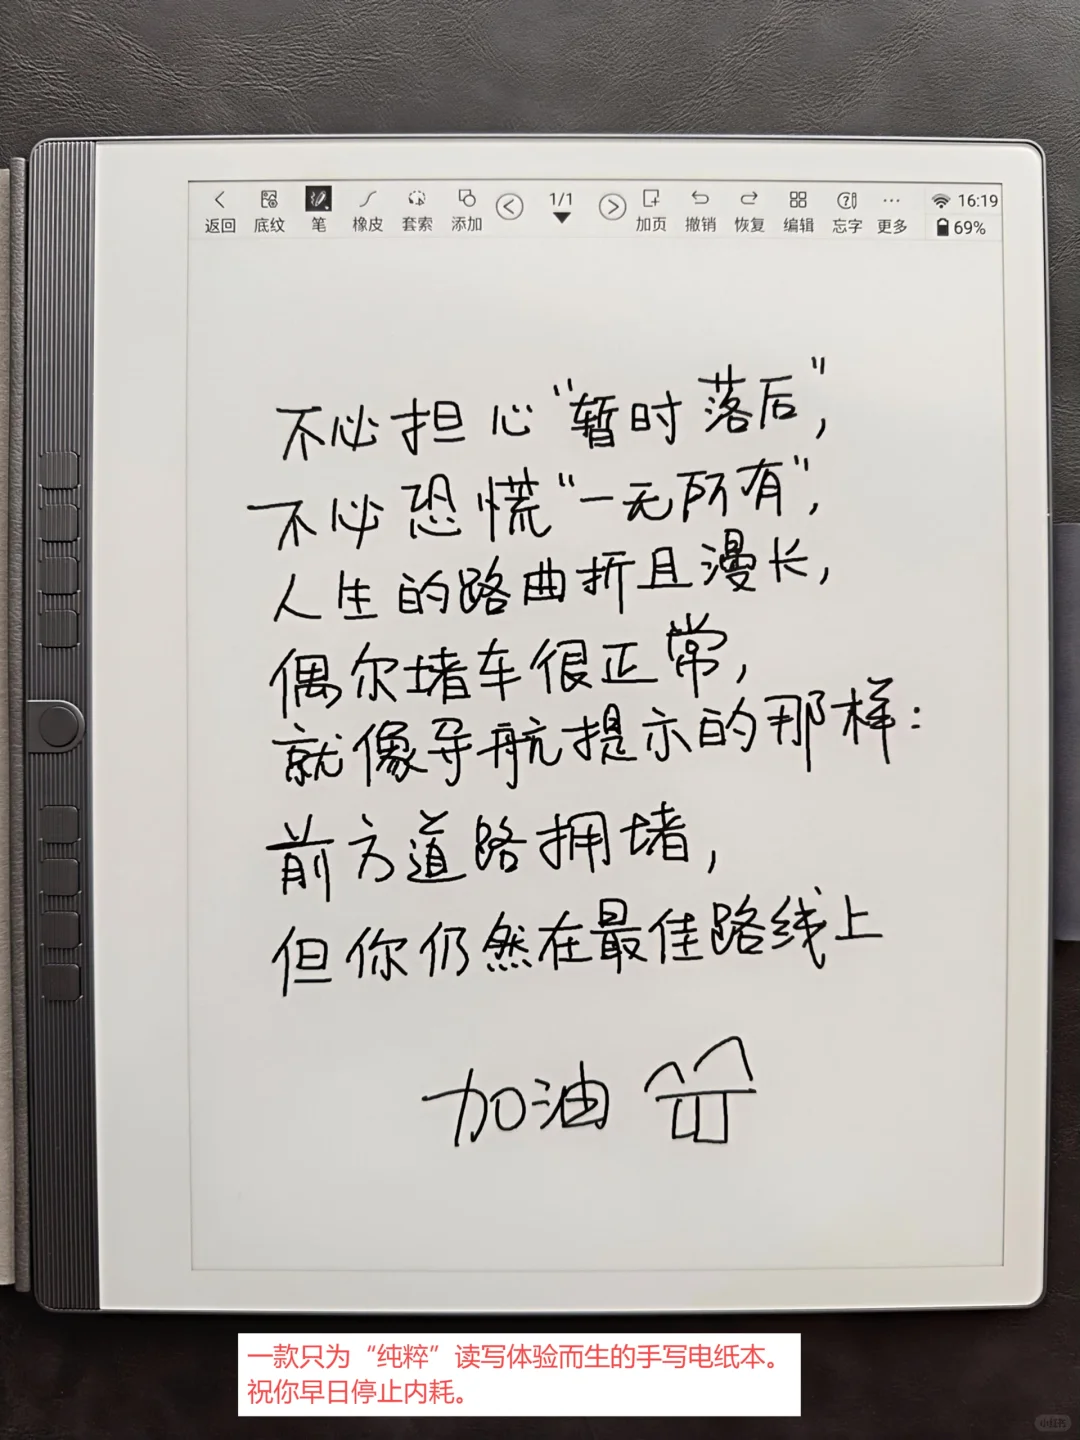 返回 底纹 笔 橡皮 套索 添加 1/1 加页 撤销 恢复 编辑 忘字 更多 16:19 69%
不必担心“暂时落后”，
不必恐慌“一无所有”，
人生的路曲折且漫长，
偶尔堵车很正常，
就像导航提示的那样：
前方道路拥堵，
但你仍然在最佳路线上
加油
一款只为“纯粹”读写体验而生的手写电纸本。
祝你早日停止内耗。
小红书